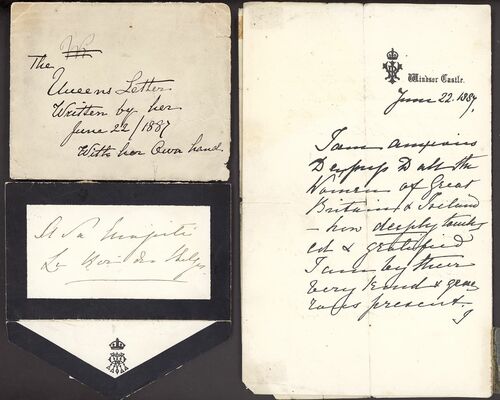 The
Queens Letter
Written by her
June 22/1887
With her Own hand
A Sa Majesté
Le Roi des Belges
Windsor Castle.
June 22. 1887.
I am anxious
to express to all the
Women of Great
Britain & Ireland
- how deeply touch
ed & gratified
I am by their
very kind & gene
rous present.